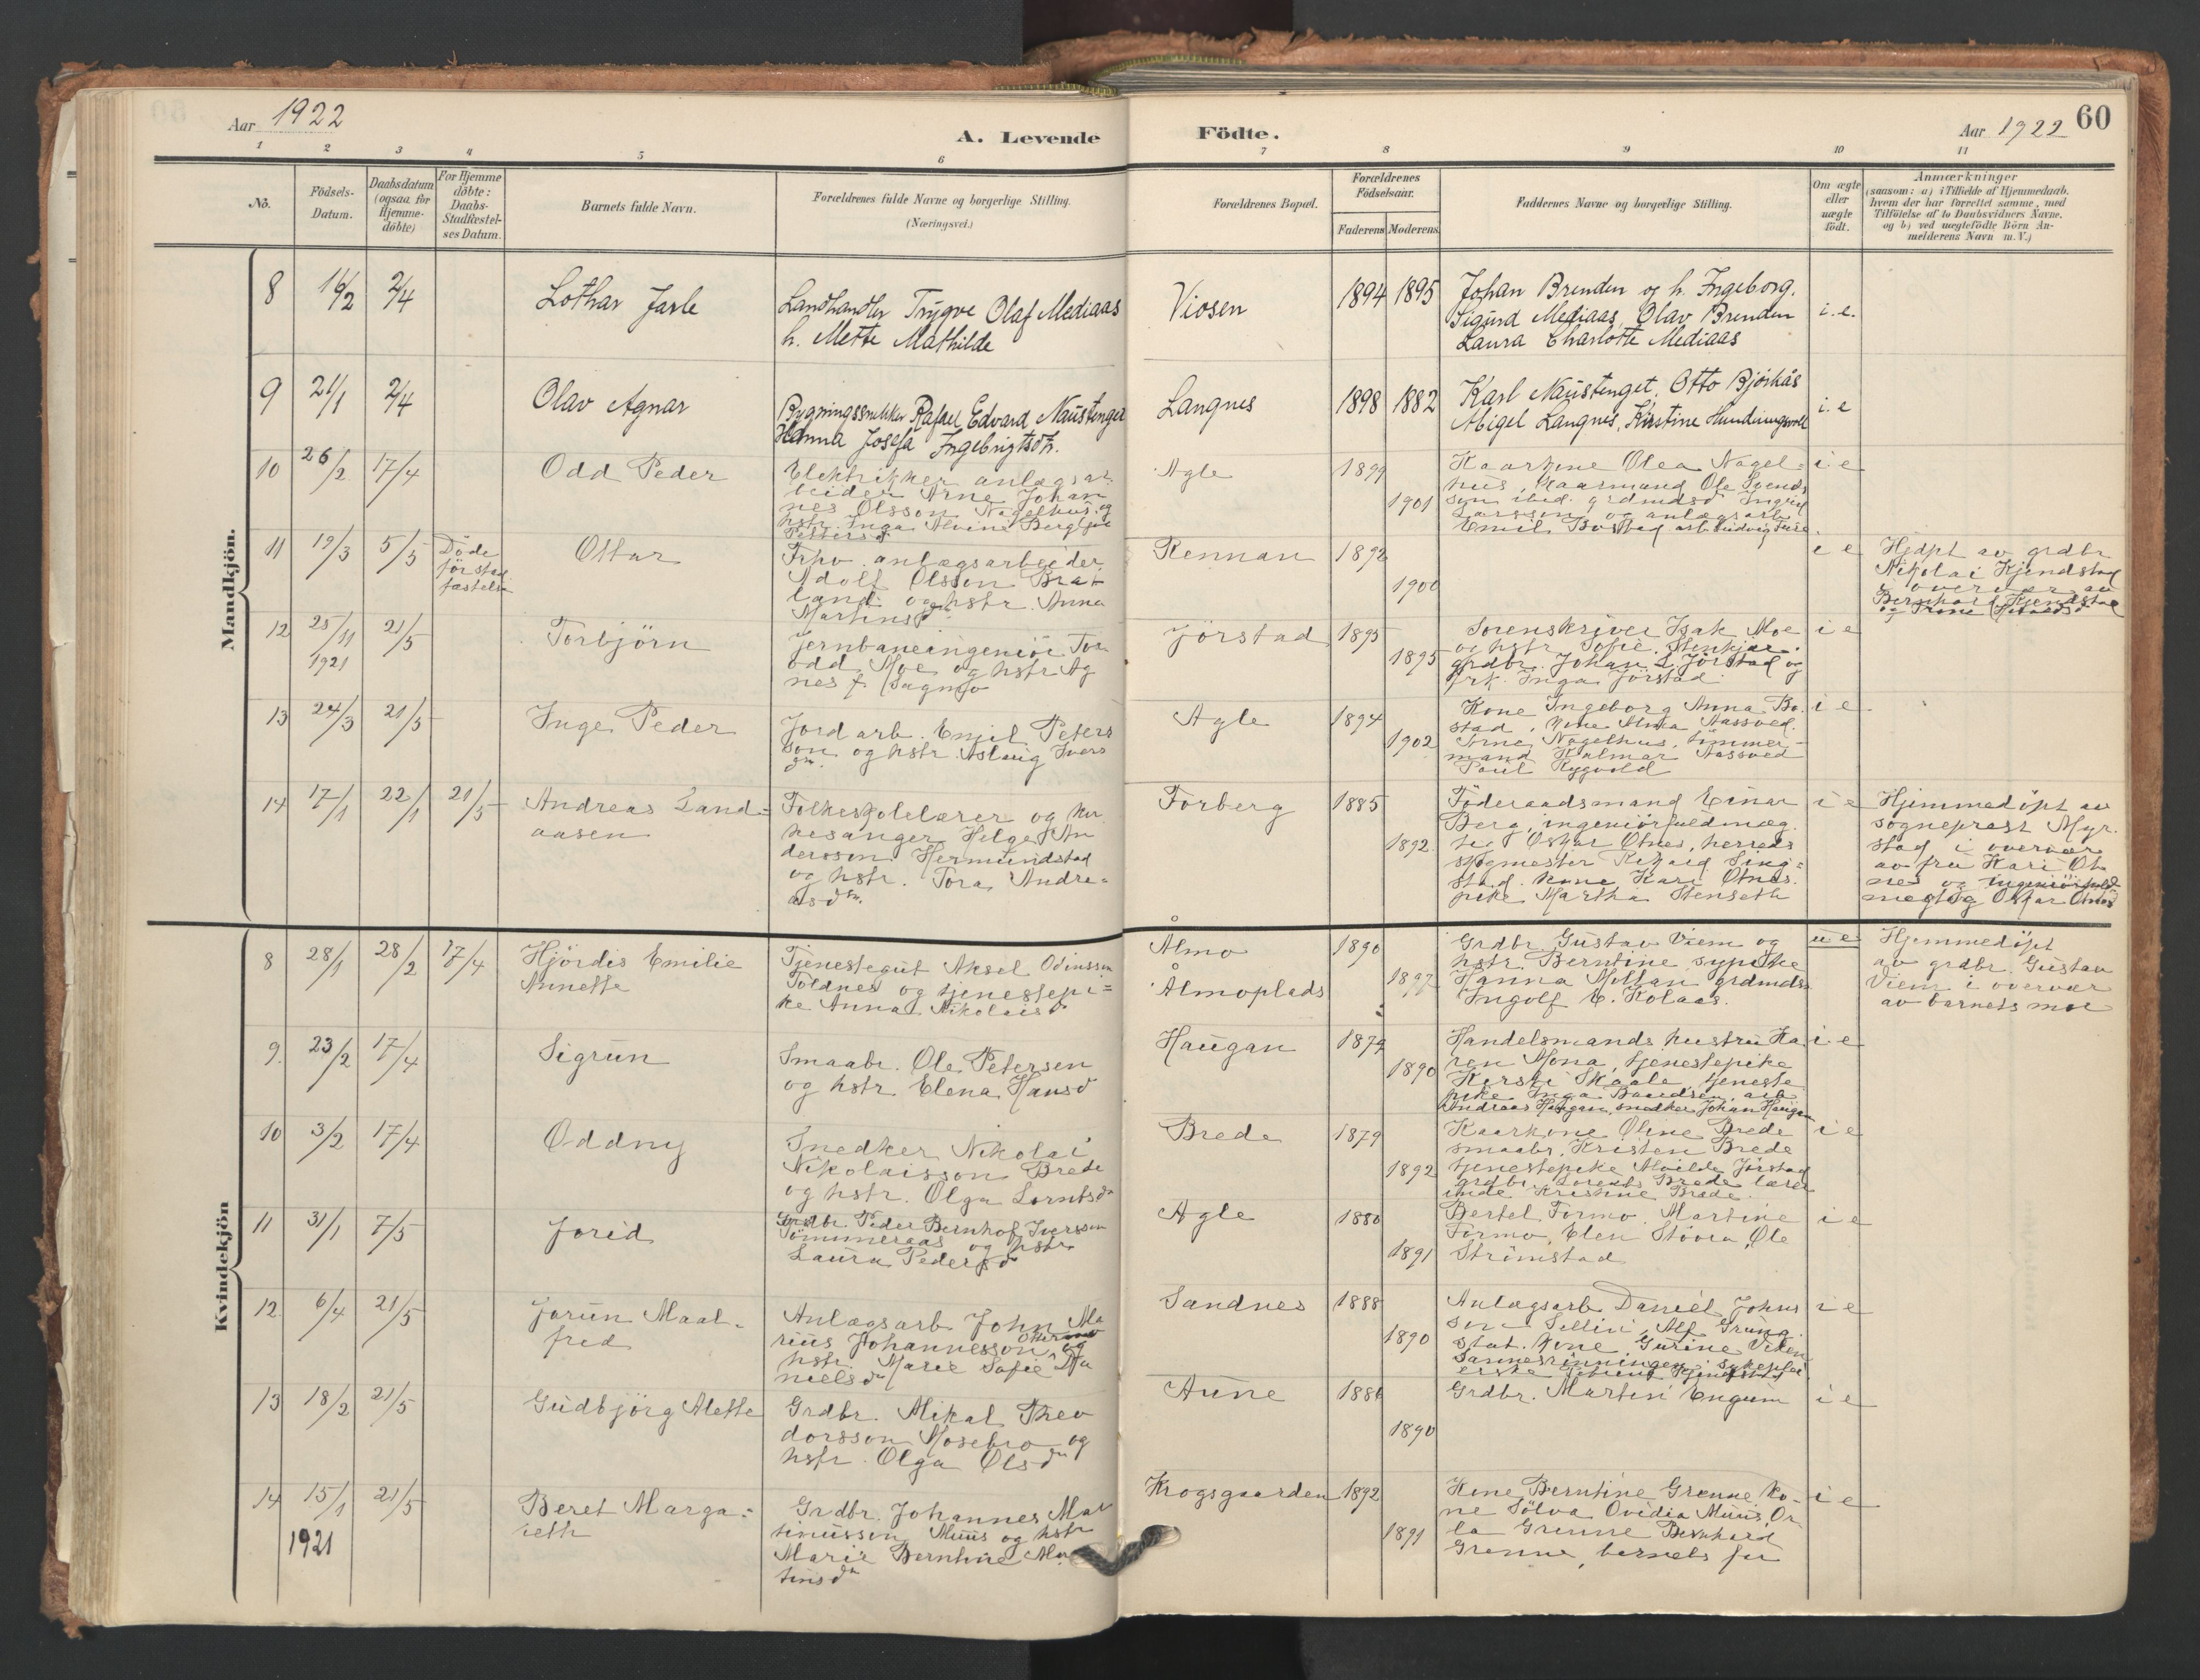 Aar 1922
A. Levende
Födte.
Aar 1922
60
1 2 3 4 5 6 7 8 9 10 11
No.
Födsels-
Datum.
Daabsdatum
(ogsaa for
Hjemme-
döbte)
For Hjemme
döbte:
Daabs-
Stadfæstel-
ses Datum.
Barnets fulde Navn.
Forældrenes fulde Navne og borgerlige Stilling.
(Næringsvei.)
Forældrenes Bopæl.
Forældrenes
Födselsaar.
Faderens
Moderens
Faddernes Navne og borgerlige Stilling.
Om ægte
eller
uægte
födt.
Anmærkninger
(saasom: a) i Tilfælde af Hjemmedaab.
hvem der har forrettet samme, med
Tilföielse af to Daabsvidners Navne.
og b) ved uægtefödte Börn An-
melderens Navn m. V.)
Mandkjön.
8 16/2 2/4
Lothar Jarle
Landhandler Trygve Olaf Mediaas
h. Mette Mathilde
Viosen
1894 1895
Johan Brenden og h. Ingeborg.
Sigurd Mediaas, Olav Brenden
Laura Charlotte Mediaas
i.e.
9 21/1 2/4
Olav Agnar
Bygningssnekker Rafael Edvard Naustenget
Hanna Josefa Ingebrigtsdtr.
Langnes
1898 1882
Karl Naustenget, Otto Bjørkås
Abigel Langnes, Kirstine
i.e
10 26/2 17/4
Odd Peder
Elektrikker anlægsar-
beider Arne Johan
nes Olsson Nagelhus og
hstr. Inga Alvine Bergljot
Pettersd
Agle
1899
1901
Kaarkone Olea Nagel-
hus, Kaarmand Ole Svends
son ibid. grdmdsd Ingrid
Larsson, og anlægsarb
Emil Bostad arb. Ludvig
i e
11 19/3 5/5
Döde
för stad
fæstelse
Ottar
Frpv. anlægsarbeider
Adolf Olsson Brat
land og hstr. Anna
Martinsd
Rennan
1892
1900
i e
Hjdpt av grdbr
Nikolai Kjendstad
i overvær av
Bernhard Kjendstad
og Trine
12 25/11 21/5
1921
Torbjörn
Jernbaneingeniör Tor
odd Moe og hstr Ag
nes f. Sagmo
Jörstad
1895
1895
Sorenskriver Isak Moe
og hstr Sofie, Stenkjær.
grdbr. Johan L Jörstad og
frk. Inga Jörstad
i e
13 24/3 21/5
Inge Peder
Jordarb. Emil Peters
son og hstr Aslaug Ivers
dtr.
Agle
1894
1902
Kone Ingeborg Anna Bo-
stad, Kone Alma Aassved.
Arne Nagelhus, tømmer-
mand Hjalmar Aassved
Paul Rygvold
i e
14 17/1 22/1 21/5
Andreas Sand-
aasen
Folkeskolelærer og kir
kesanger Helge An
dersson Hermundstad
og hstr. Tora Andre-
asdtr.
Forberg
1885
1892
Föderaadsmand Einar
Berg, ingeniörfuldmæg
tig Oskar Otnes, herreds
skogmester Rikard Sing-
stad. Kone Kari Otnes.
pike Martha Stenseth
i e
Hjemmedöpt av
sogneprest Myr-
stad i overvær
av fru Kari Ot
nes og ingeniörfuld-
megtig Oskar Otnes
Kvindekjön
8 28/1 28/2 17/4
Hjördis Emilie
Annette
Tjenestegut Aksel Odinsson
Toldnes og tjenestepi-
ke Anna Nikolaisd
Ålmo
Ålmoplads
1890
1897
Grdbr. Gustav Viem og
hstr. Berntine sypike
Hanna Moltan grdmds.
Ingolf E. Kolaas.
u e
Hjemmedöpt
av grdbr. Gustav
Viem i overvær
av barnets mor
9. 23/2 17/4
Sigrun
Smaabr. Ole Petersen
og hstr Elena Hansd
Haugan
1879
1890
Handelsmands hustru Ka
ren Mona, tjenestepike
Kirsti Skaale, tjeneste
pike Inga Baardsen, arb
Andreas Haugan, snedker Johan Haugan
i e
10 3/2 17/4
Oddny
Snedker Nikolai
Nikolaisson Brede
og hstr. Olga Lorntsdtr
Brede
1879
1892
Kaarkone Oline Brede
smaabr. Kristen Brede
tjenestepike Alvilde Jörstad
grdbr. Lorents Brede lærer
inde Kristine Brede.
i e
11 31/1 7/5
Jorid
Grdbr. Peder Bernhof Iversson
Tömmeraas og hstr
Laura Pedersd
Agle
1880
1891
Bertel Formo, Martine
Formo, Elen Stövra, Ole
Strömstad
i e
12. 6/4 21/5
Jorun Maal-
frid
Anlægsarb John Ma
rius Johannesson og
hstr. Marie Sofie Da
nielsdtr
Sandnes
1888
1890
Anlægsarb. Daniel Johns
son Sellin, Alf Grung-
stad. Kone Gurine Viken
i e
13 18/2 21/5
Gudbjörg Alette
Grdbr. Mikal Theo
dorsson Mosebro og
hstr. Olga Olsdtr
Aune
1886
1890
Grdbr. Martin Engum
i e
14 15/1 21/5
1921
Beret Marga-
reth
Grdbr. Johannes Mar
tinusson Muus og hstr
Marie Berntine Mar
tinsdtr
Krogsgaarden
1892
1891
Kone Berntine Grenne ko-
ne Sölva Ovidia Muus, Or-
la Grenne Bernhard
Grenne, barnets far
i e